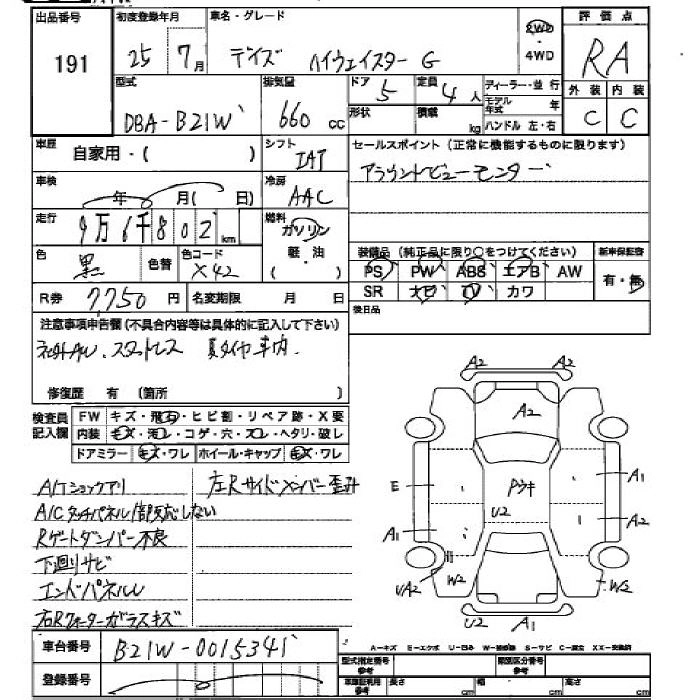 出品番号 初度登録年月 車名・グレード 2WD・4WD 評価点
191 25 7月 デイズ ハイウェイスター G RA
型式 排気量 ドア 定員 ディーラー・並行 外装 内装
DBA-B21W 660cc 5 4人 モデル年式 年 C C
形状 積載 kg ハンドル 左・右
車歴 自家用・( ) シフト IAT セールスポイント (正常に機能するものに限ります)
車検 年 月( 日) 冷房 AAC アラウンドビューモニター
走行 9万6千802km 燃料 ガソリン 軽・油
装備品 (純正品に限り○をつけてください) 新車保証書
色 黒 色替 色コード X42 PS PW ABS エアB AW 有・無
R券 7750円 名変期限 月 日 SR ナビ TV カワ
注意事項申告欄(不具合内容等は具体的に記入して下さい) 後日品
社外AW. スタットレス 夏タイヤ車内.
修復歴 有 〔箇所 〕
検査員記入欄 FW キズ・飛石・ヒビ割・リペア跡・X要
内装 キズ・汚レ・コゲ・穴・スレ・ヘタリ・破レ
ドアミラー キズ・ワレ ホイール・キャップ キズ・ワレ
A/Tショックアリ 左Rサイドメンバー歪計
A/Cタッチパネル1部反応しない
Rゲートダンパー不良
下廻りサビ
エンドパネルU
右Rクォーターガラスキズ
A2 A2
A2
E Pウキ A1
U2 A2
A1
UA2 W2 W2
U2 A1
車台番号 B21W-0015341
登録番号
A-キズ E-エクボ U-凹み W-補修跡 S-サビ C-腐食 XX-交換済
型式指定番号 参考 類別区分番号 参考
車庫証明用 参考 長さ cm 幅 cm 高さ cm